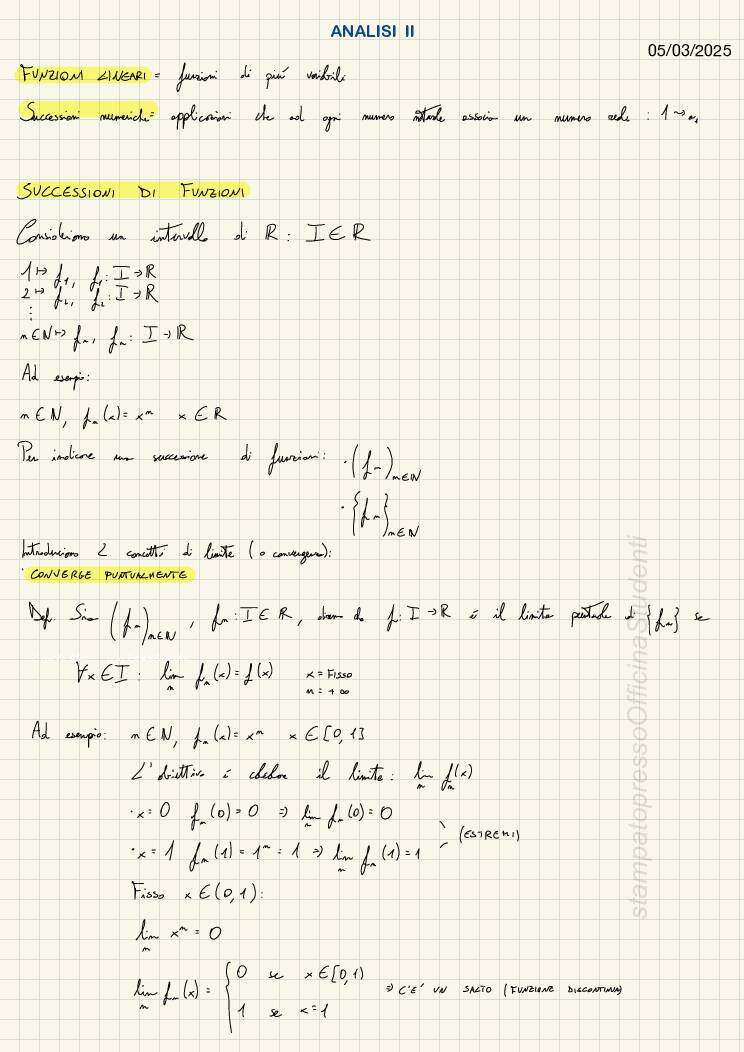 ANALISI II
05/03/2025
FUNZIONI LINEARI = funzioni di più variabili
Successioni numeriche = applicazioni che ad ogni numero naturale associa un numero reale : 1 ⇝ a₁
SUCCESSIONI DI FUNZIONI
Consideriamo un intervallo di ℝ : I ∈ ℝ
1 ↦ f₁, f₁: I → ℝ
2 ↦ f₂, f₂: I → ℝ
⋮
n ∈ ℕ ↦ fₙ, fₙ: I → ℝ
Ad esempio:
n ∈ ℕ, fₙ(x) = xⁿ x ∈ ℝ
Per indicare una successione di funzioni: · (fₙ)ₙ∈ℕ
· {fₙ}ₙ∈ℕ
Introduciamo 2 concetti di limite (o convergenza):
· CONVERGE PUNTUALMENTE
Def. Sia (fₙ)ₙ∈ℕ, fₙ: I ∈ ℝ, diremo che f: I → ℝ è il limite puntuale di {fₙ} se
∀x ∈ I : lim fₙ(x) = f(x) x = FISSO
n n = +∞
Ad esempio: n ∈ ℕ, fₙ(x) = xⁿ x ∈ [0,1]
L'obiettivo è calcolare il limite: lim fₙ(x)
n
· x = 0 fₙ(0) = 0 ⇒ lim fₙ(0) = 0
n
(ESTREMI)
· x = 1 fₙ(1) = 1ⁿ = 1 ⇒ lim fₙ(1) = 1
n
Fisso x ∈ (0,1):
lim xⁿ = 0
n
lim fₙ(x) = { 0 se x ∈ [0,1) ⇒ C'E' UN SALTO (FUNZIONE DISCONTINUA)
n
1 se x = 1
stampatopressoOfficinaStudenti